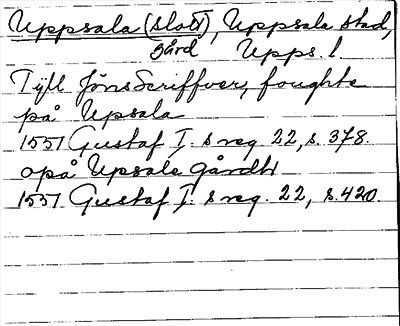 Uppsala (slott), Uppsala stad,
gård Upps. l.
Tijll Jöns Scriffver, foughte
på Upsala
1551 Gustaf I. s reg. 22, s. 378.
opå Upsale gårdh
1551 Gustaf I. s reg. 22, s. 420.